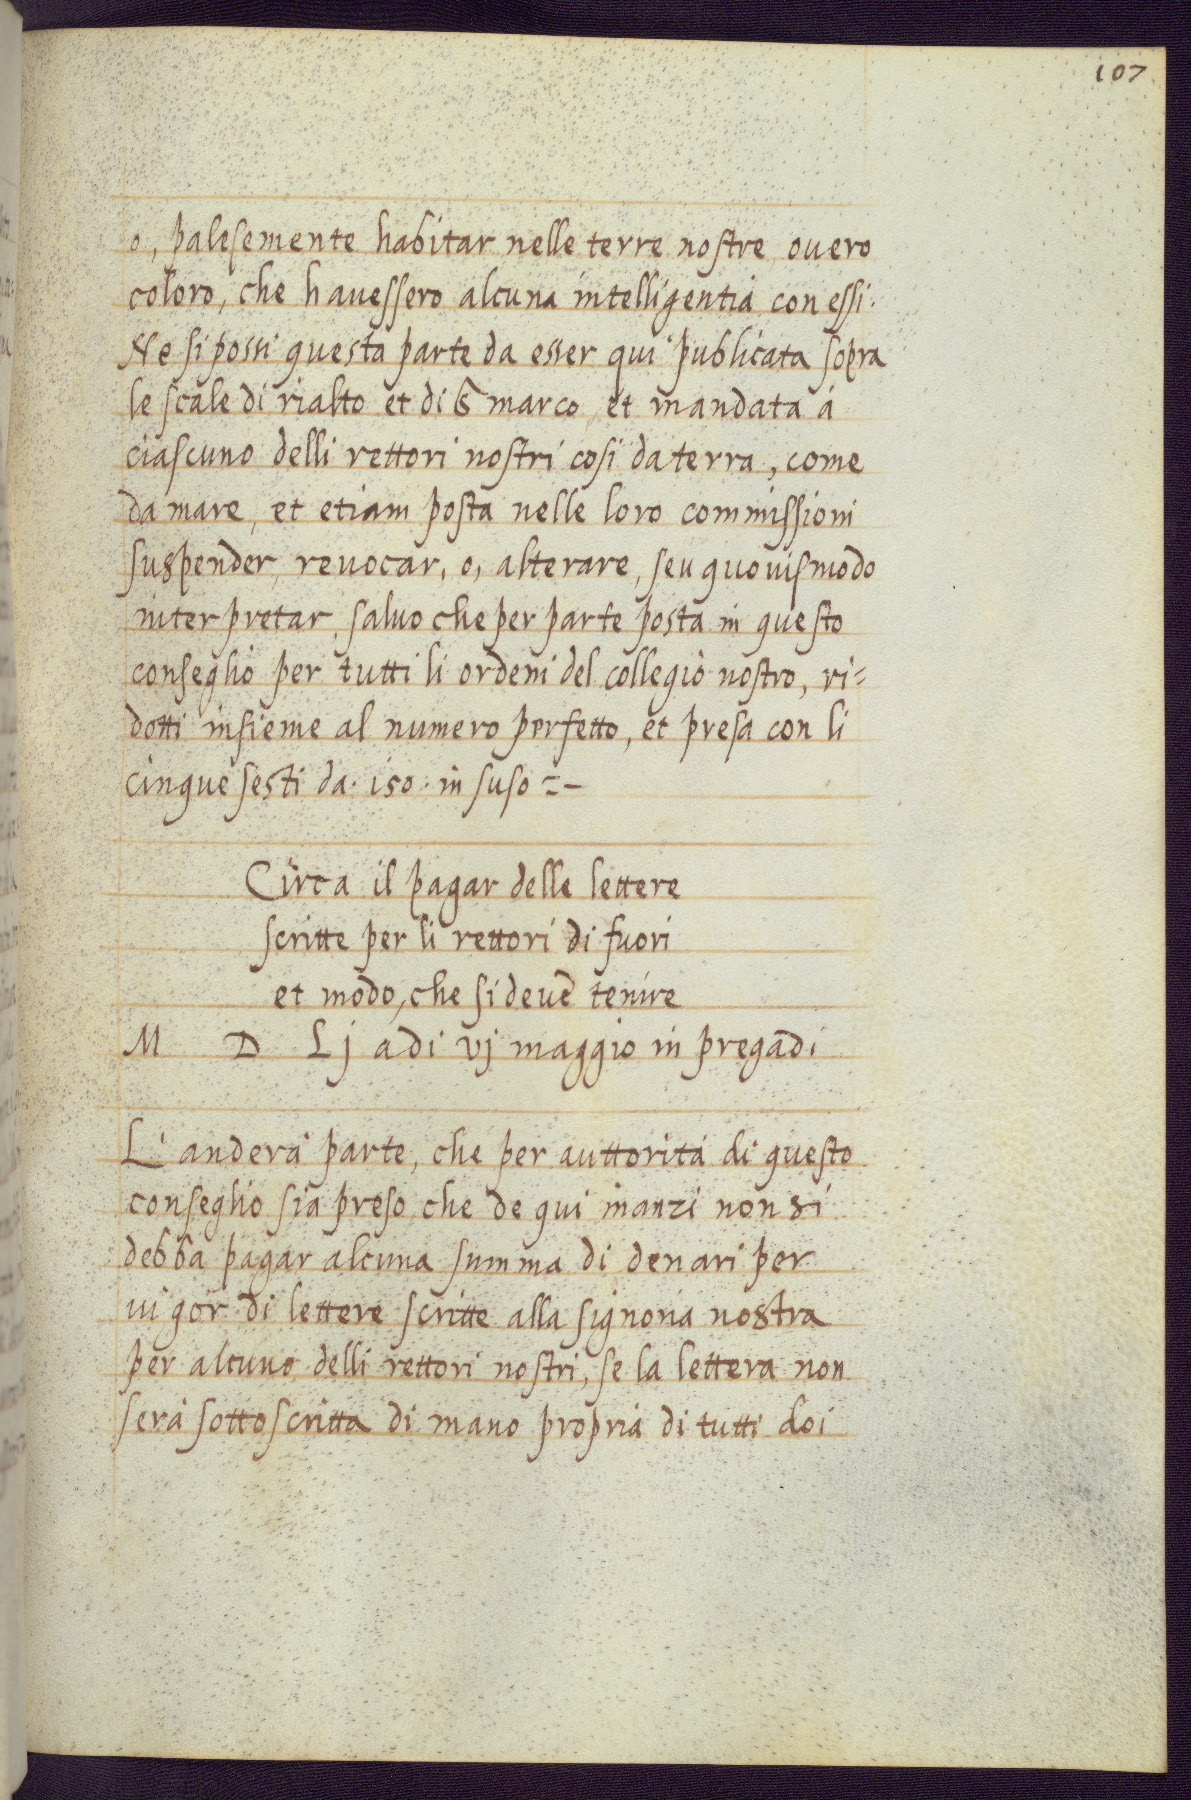 107
o, palesemente habitar nelle terre nostre, overo
coloro, che havessero alcuna intelligentia con essi.
Ne si possi questa parte da esser qui publicata sopra
le scale di rialto et di S marco, et mandata à
ciascuno delli rettori nostri cosi da terra, come
da mare, et etiam posta nelle loro commissioni
suspender, revocar, o, alterare, seu quovismodo
interpretar, salvo che per parte posta in questo
conseglio per tutti li ordeni del collegio nostro, ri=
dotti insieme al numero perfetto, et presa con li
cinque sesti da. 150. in suso =-
Circa il pagar delle lettere
scritte per li rettori di fuori
et modo, che si deve tenire
M D Lj adi vj maggio in pregadi
L' anderà parte, che per auttorità di questo
conseglio sia preso, che de qui inanzi non si
debba pagar alcuna summa di denari per
vigor di lettere scritte alla signoria nostra
per alcuno delli rettori nostri, se la lettera non
serà sottoscritta di mano propria di tutti doi